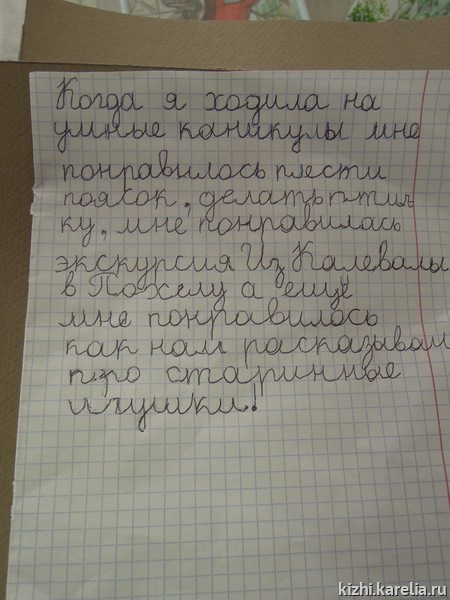 Когда я ходила на
умные каникулы мне
понравилось плести
поясок, делать птич
ку, мне понравилась
экскурсия Из Калевалы
в Похелу а ещё
мне понравилось
как нам расказывали
про старинные
игушки!
kizhi.karelia.ru